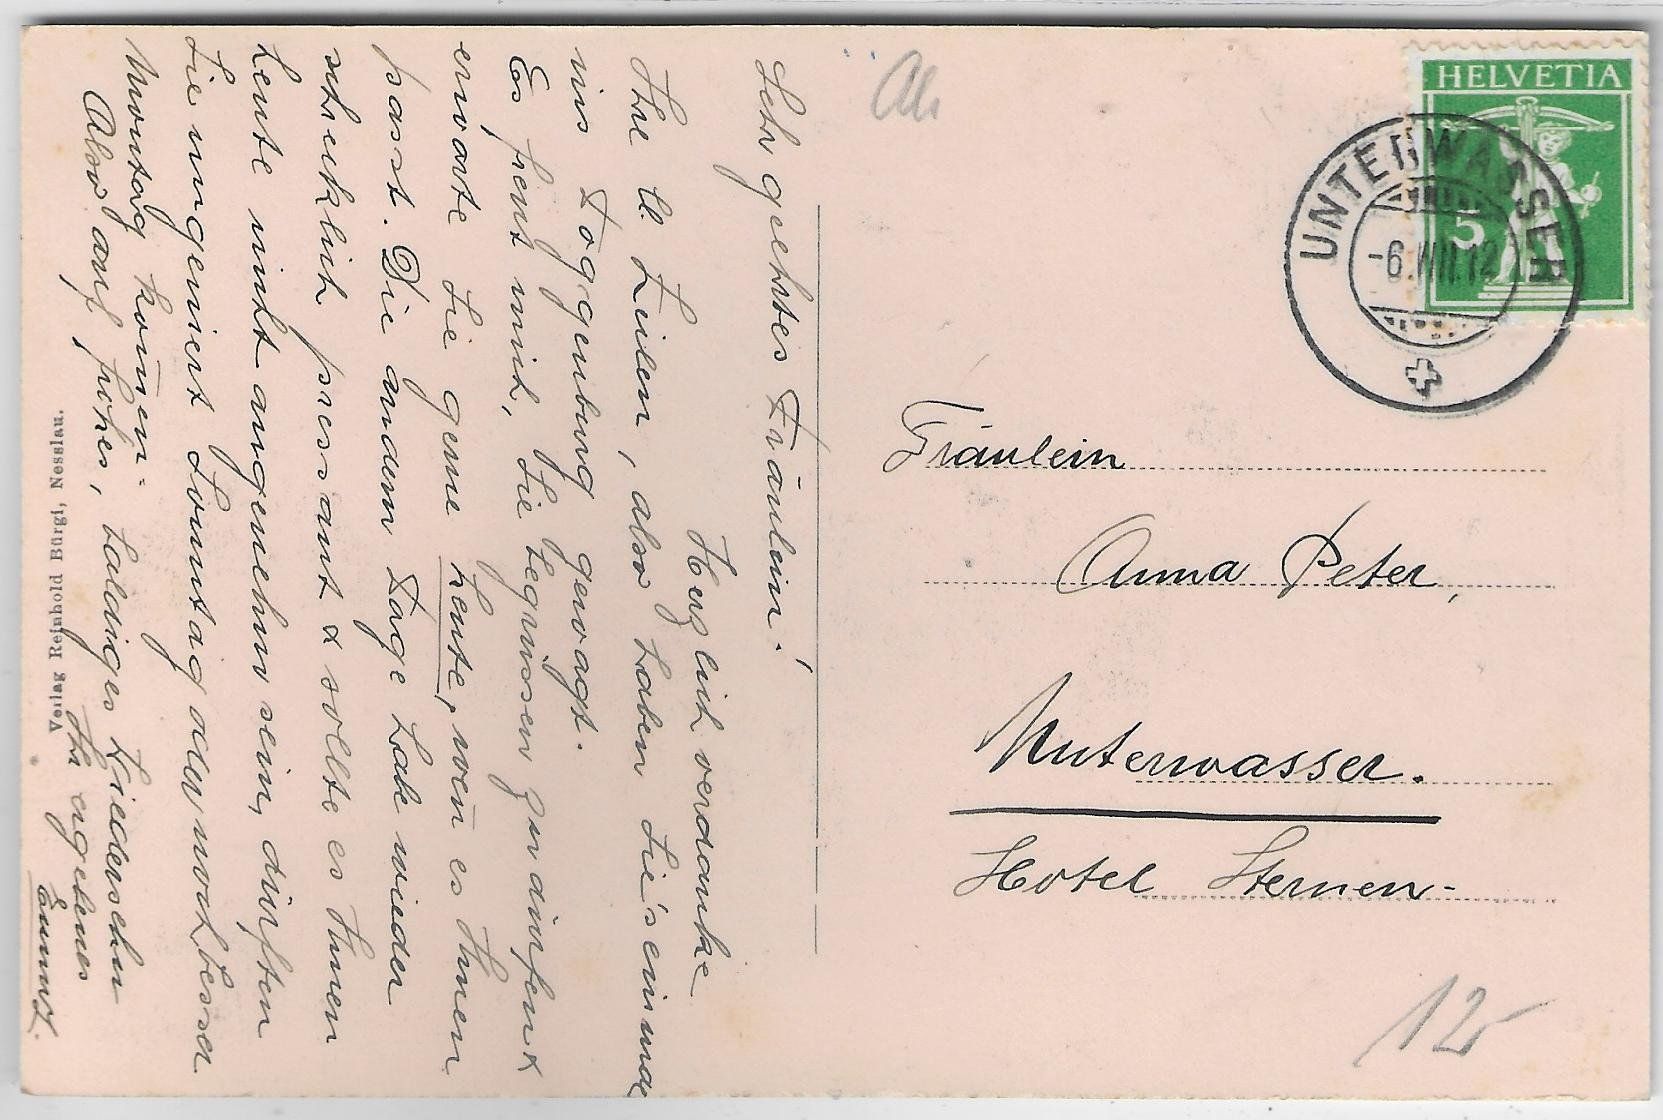 Sehr geehrtes Fräulein!
Herzlich verdanke
Ihre l. Zeilen, also haben Sie's ein mal
ins Toggenburg gewagt.
Es freut mich, Sie begrüssen zu dürfen &
erwarte Sie gerne heute, wen̄ es Ihnen
passt. Die andern Tage habe wieder
schrecklich pressant & sollte es Ihnen
heute nicht angenehm sein, dürften
Sie ungeniert Sonntag oder noch besser
Montag kom̄en.-
Also auf frohes, baldiges Wiedersehn
Ihr ergebenes
Verlag Reinhold Bürgi, Nesslau.
HELVETIA
5
UNTERWASSER
-6.VIII.12
Fräulein
Anna Peter,
Unterwasser.
Hotel Sternen-
12